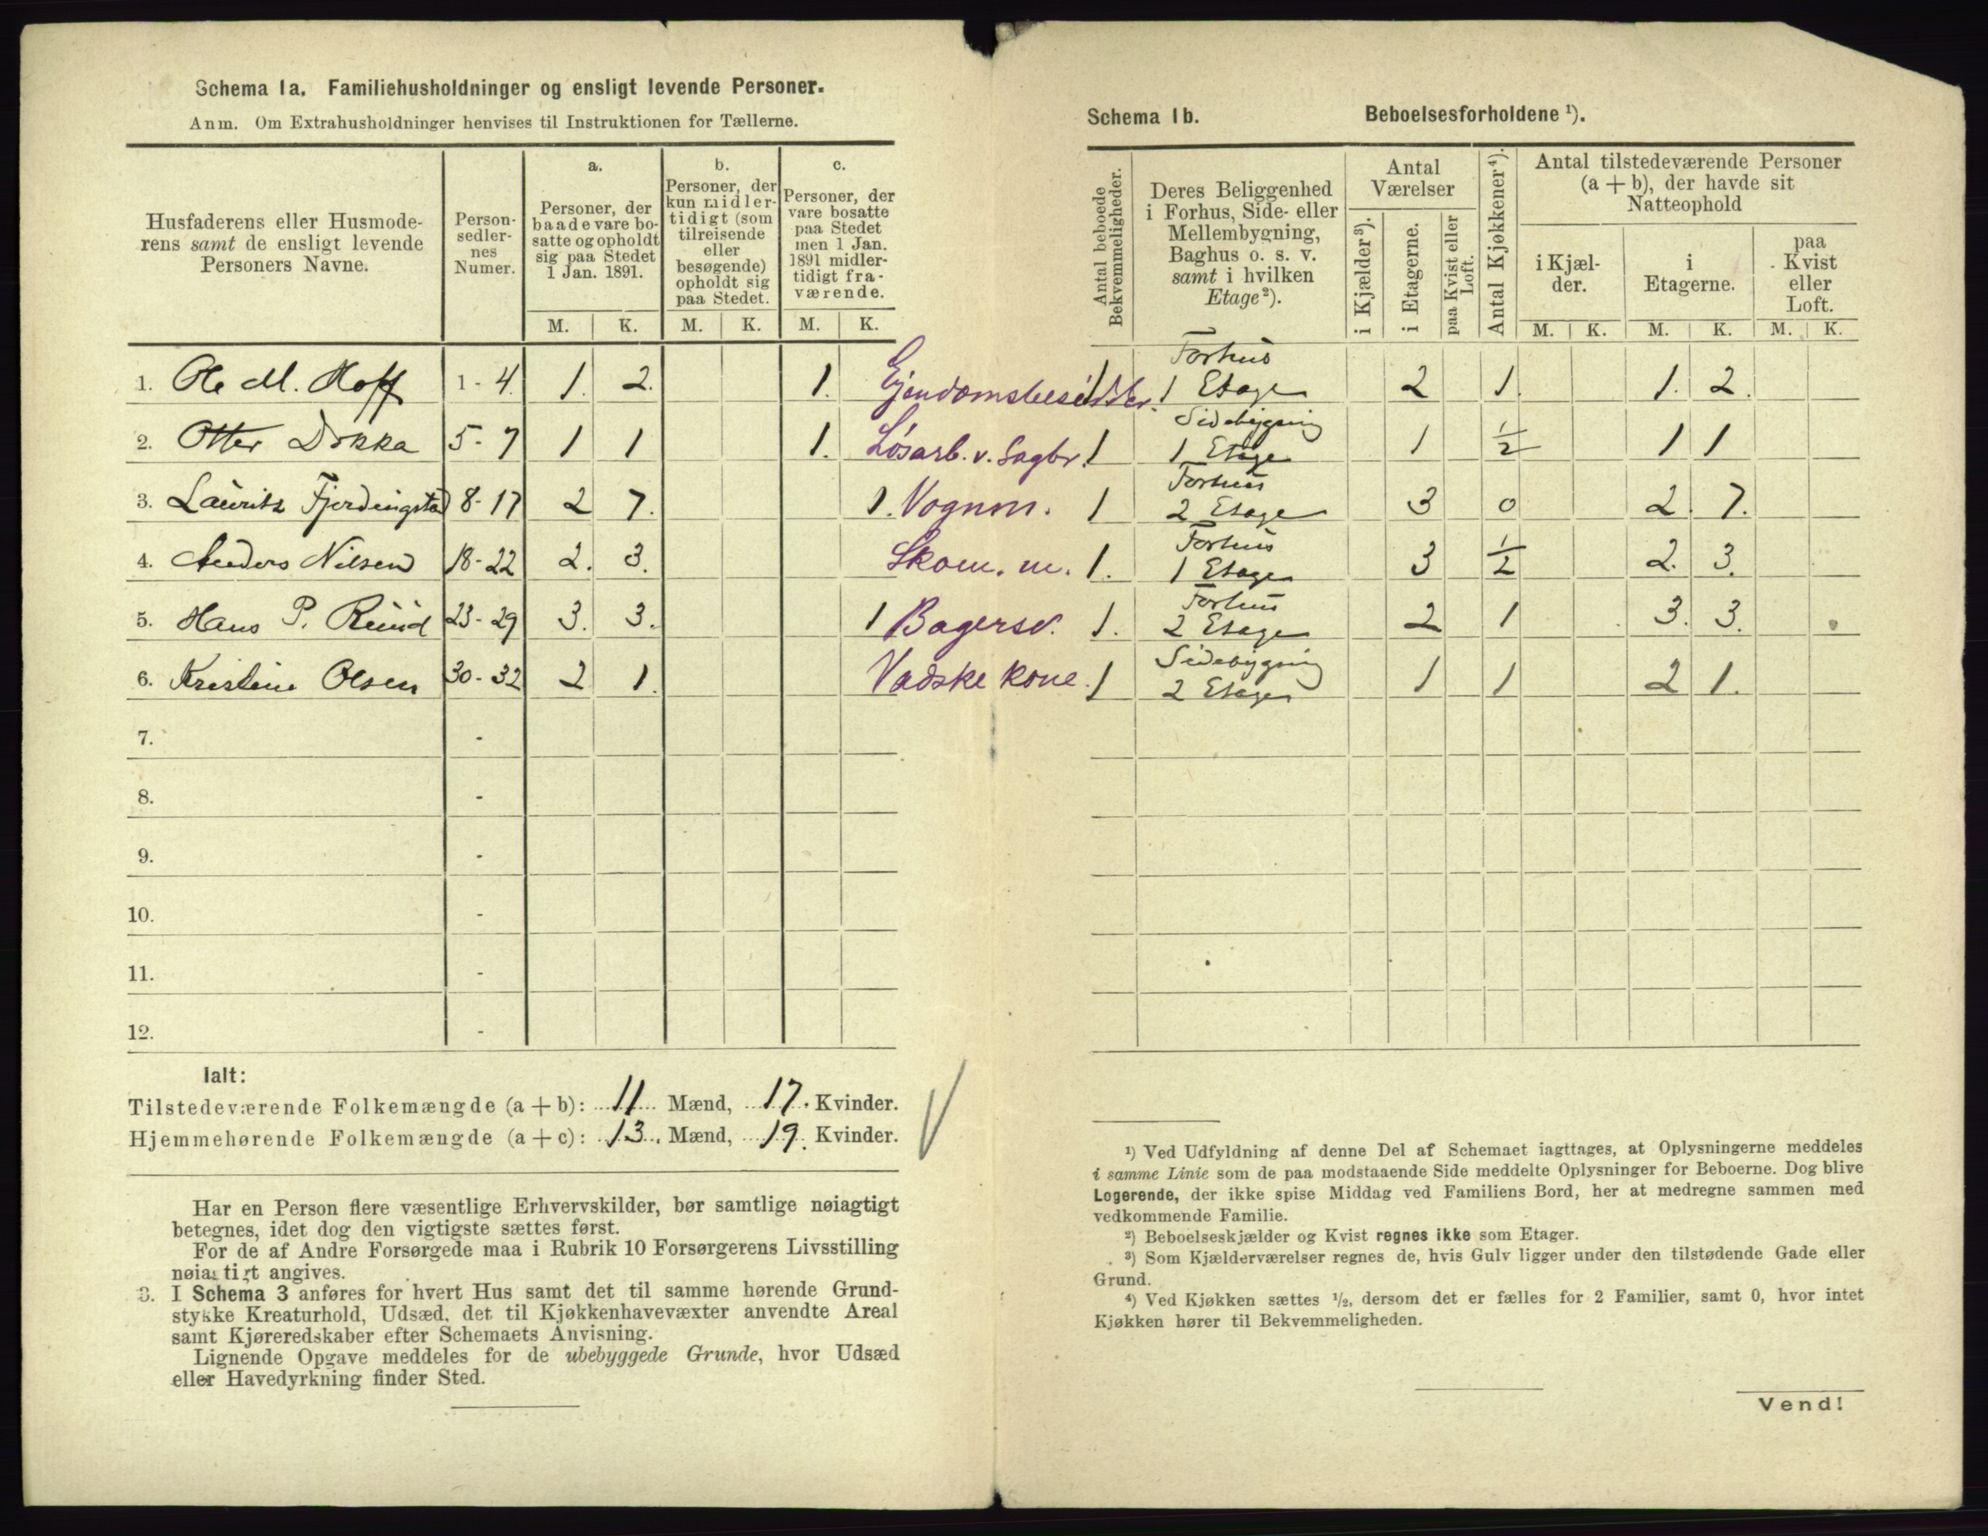 Schema 1a. Familiehusholdninger og ensligt levende Personer.
Anm. Om Extrahusholdninger henvises til Instruktionen for Tællerne.
Husfaderens eller Husmoderens samt de ensligt levende Personers Navne.
Personsedlernes Numer.
a.
Personer, der baade vare bosatte og opholdt sig paa Stedet 1 Jan. 1891.
b.
Personer, der kun midlertidigt (som tilreisende eller besøgende) opholdt sig paa Stedet.
c.
Personer, der vare bosatte paa Stedet men 1 Jan. 1891 midlertidigt fraværende.
M. K. M. K. M. K.
1. Ole M. Hoff 1-4 1. 2. 1. Ejendomsbesidder.
2. Otter Dokka 5-7 1 1 1. Løsarb. v. Sagbr.
3. Lauritz Fjerdingstad 8-17 2 7. 1. Vognm.
4. Anders Nilsen 18-22 2. 3. Skom. m.
5. Hans P. Ruud 23-29 3. 3. 1 Bagersv.
6. Kristine Olsen 30-32 2 1. Vadskekone.
7. -
8. -
9. -
10. -
11. -
12. -
Ialt:
Tilstedeværende Folkemængde (a + b): 11 Mænd, 17. Kvinder.
Hjemmehørende Folkemængde (a + c): 13. Mænd, 19. Kvinder.
Har en Person flere væsentlige Erhvervskilder, bør samtlige nøiagtigt
betegnes, idet dog den vigtigste sættes først.
For de af Andre Forsørgede maa i Rubrik 10 Forsørgerens Livsstilling
nøiagtigt angives.
3. I Schema 3 anføres for hvert Hus samt det til samme hørende Grund-
stykke Kreaturhold, Udsæd, det til Kjøkkenhavevæxter anvendte Areal
samt Kjøreredskaber efter Schemaets Anvisning.
Lignende Opgave meddeles for de ubebyggede Grunde, hvor Udsæd
eller Havedyrkning finder Sted.
Schema 1b. Beboelsesforholdene ¹).
Antal beboede Bekvemmeligheder.
Deres Beliggenhed i Forhus, Side- eller Mellembygning, Baghus o. s. v. samt i hvilken Etage ²).
Antal Værelser
i Kjælder ³).
i Etagerne.
paa Kvist eller Loft.
Antal Kjøkkener ⁴).
Antal tilstedeværende Personer (a + b), der havde sit Natteophold
i Kjælder.
i Etagerne.
paa Kvist eller Loft.
M. K. M. K. M. K.
1 Forhus 1 Etage 2 1. 1. 2.
1 Sidebygning 1 Etage 1 1/2 1 1
1 Forhus 2 Etage 3 0 2. 7.
1. Forhus 1 Etage 3 1/2 2. 3.
1. Forhus 2 Etage 2 1 3. 3.
1 Sidebygning 2 Etage 1 1 2 1.
¹) Ved Udfyldning af denne Del af Schemaet iagttages, at Oplysningerne meddeles
i samme Linie som de paa modstaaende Side meddelte Oplysninger for Beboerne. Dog blive
Logerende, der ikke spise Middag ved Familiens Bord, her at medregne sammen med
vedkommende Familie.
²) Beboelseskjælder og Kvist regnes ikke som Etager.
³) Som Kjælderværelser regnes de, hvis Gulv ligger under den tilstødende Gade eller
Grund.
⁴) Ved Kjøkken sættes 1/2, dersom det er fælles for 2 Familier, samt 0, hvor intet
Kjøkken hører til Bekvemmeligheden.
Vend!